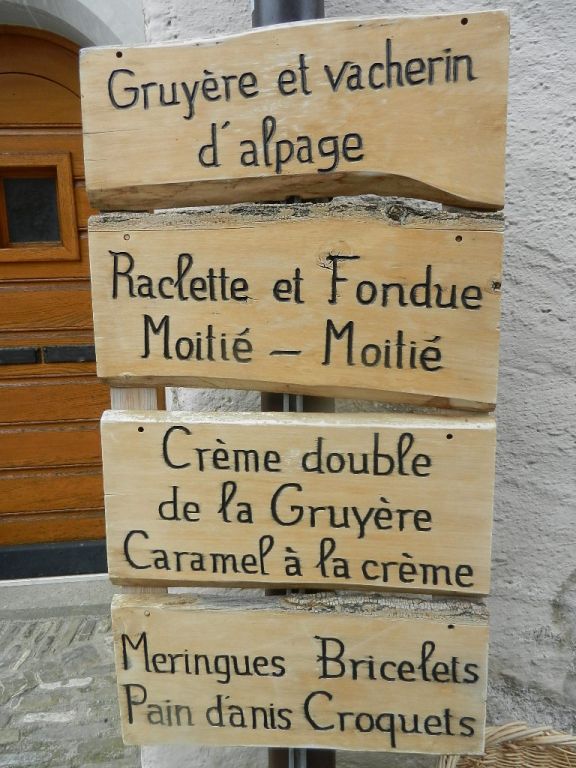 Gruyère et vacherin
d'alpage
Raclette et Fondue
Moitié - Moitié
Crème double
de la Gruyère
Caramel à la crème
Meringues Bricelets
Pain d'anis Croquets